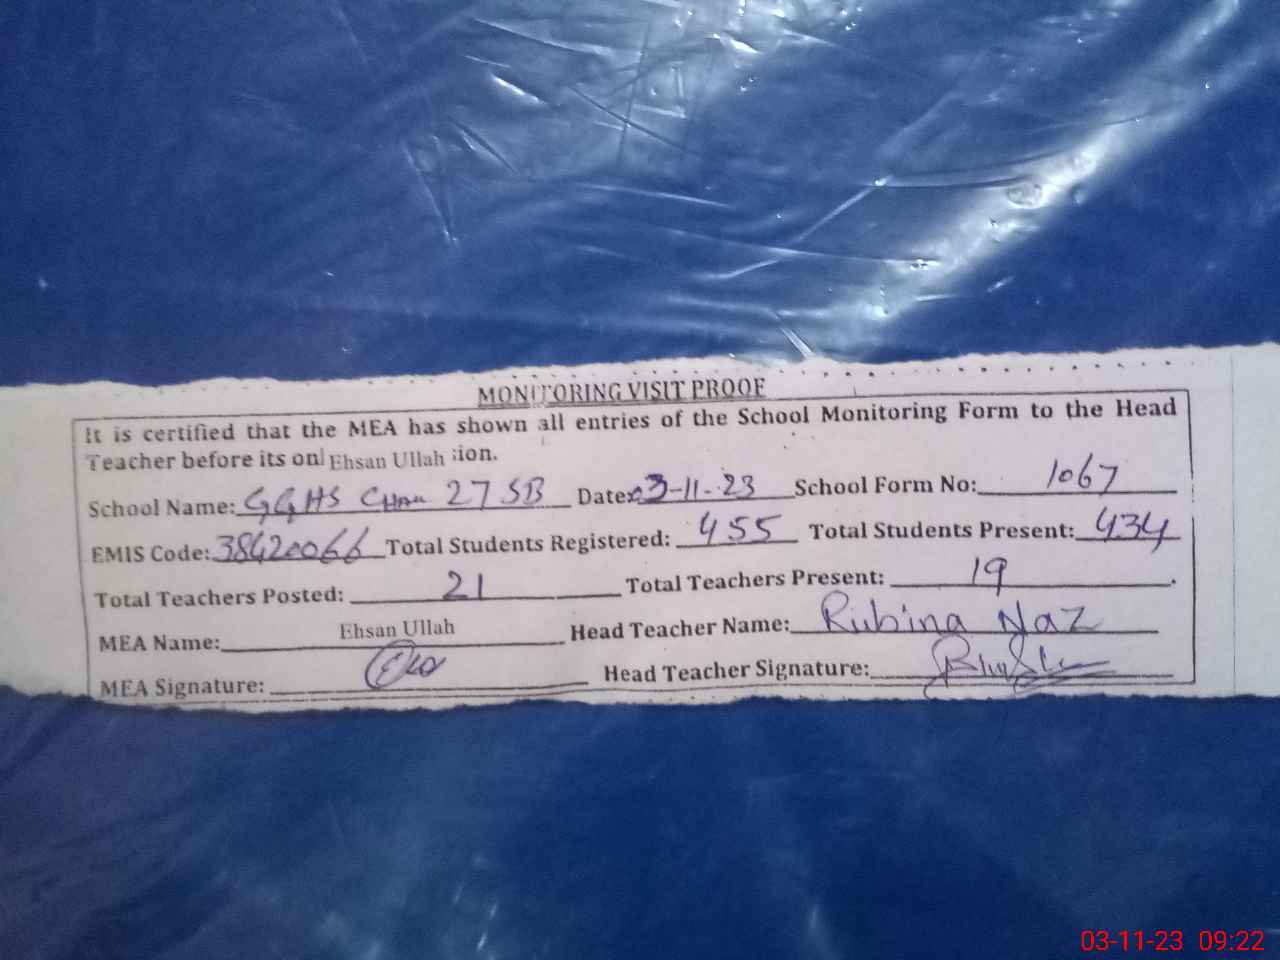 MONITORING VISIT PROOF
It is certified that the MEA has shown all entries of the School Monitoring Form to the Head
Teacher before its onl Ehsan Ullah ion.
School Name: GGHS Chak 27 SB Date: 03-11-23 School Form No: 1067
EMIS Code: 38420066 Total Students Registered: 455 Total Students Present: 434
Total Teachers Posted: 21 Total Teachers Present: 19.
MEA Name: Ehsan Ullah Head Teacher Name: Rubina Naz
MEA Signature: Head Teacher Signature:
03-11-23 09:22